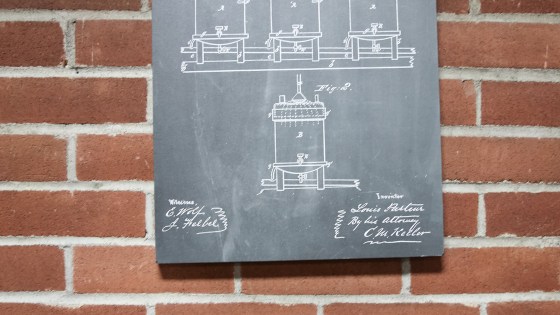 A A A
B B B
Fig: 2.
B
Witnesses Inventor
E. Wolf Louis Pasteur
J. Helbel By his Attorney
C. M. Keller